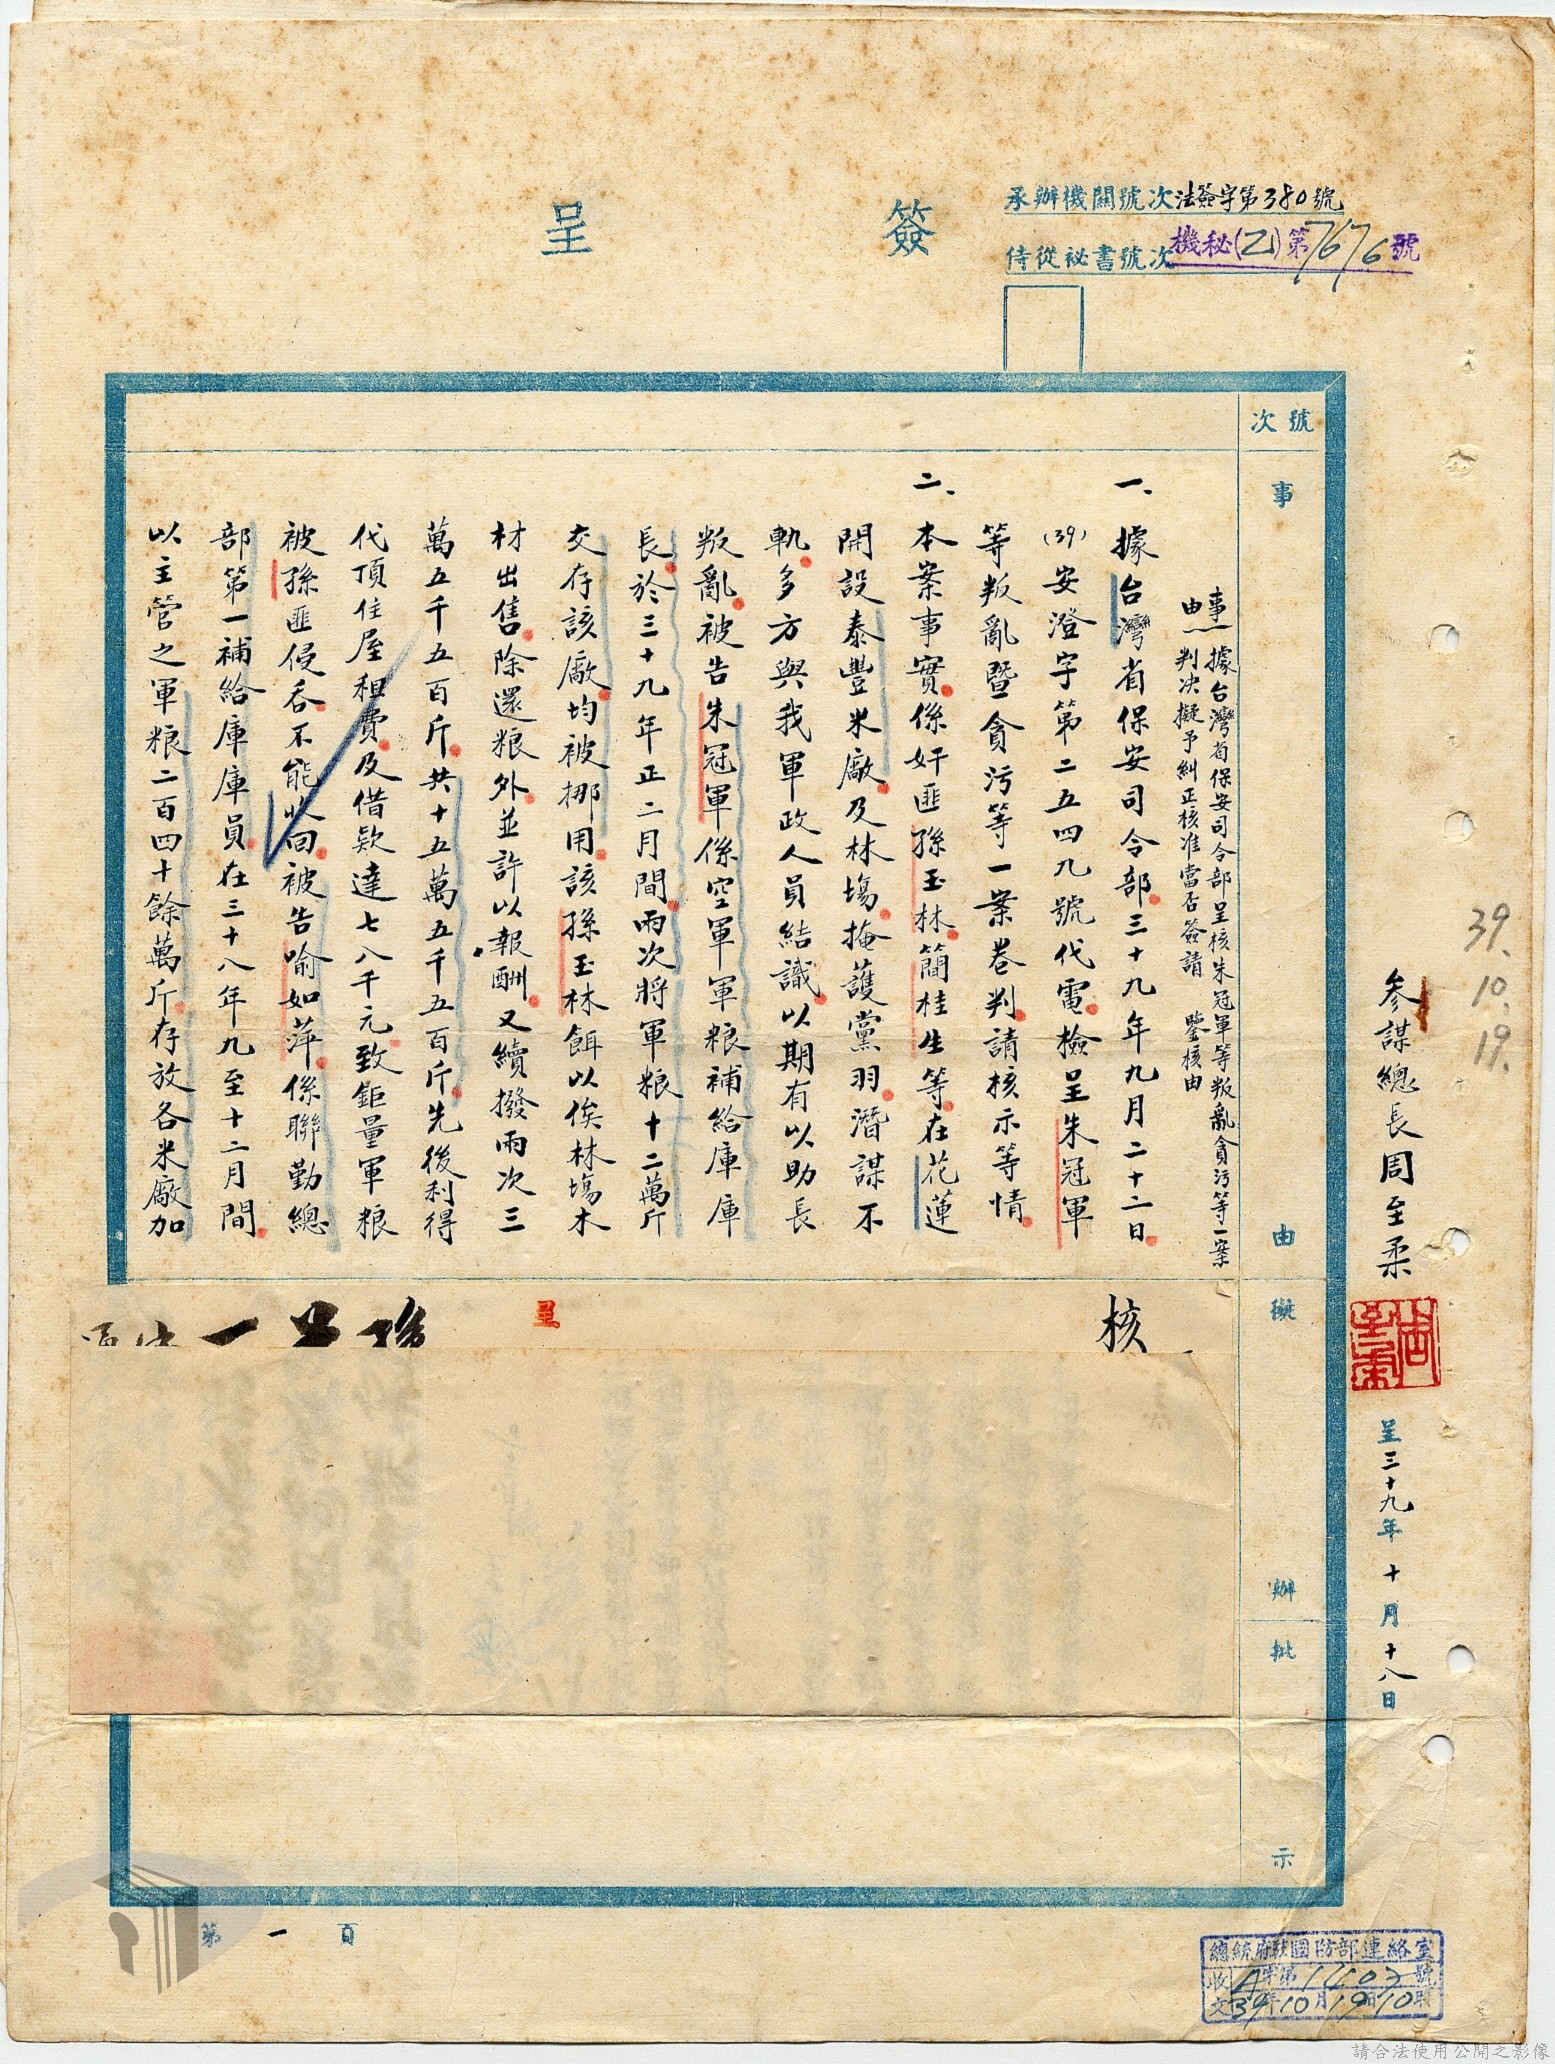 簽呈
承辦機關號次法簽字第380號
侍從祕書號次機秘(乙)第7676號
號次
事由
擬辦
批示
參謀總長周至柔
周至柔
呈三十九年十月十八日
39.10.19.
事由
據台灣省保安司令部呈核朱冠軍等叛亂貪污等一案
判決擬予糾正核准當否簽請 鑒核由
一、據台灣省保安司令部三十九年九月二十二日
(39)安澄字第二五四九號代電檢呈朱冠軍
等叛亂暨貪污等一案卷判請核示等情
二、本案事實係奸匪孫玉林簡桂生等在花蓮
開設泰豐米廠及林場掩護黨羽潛謀不
軌多方與我軍政人員結識以期有以助長
叛亂被告朱冠軍係空軍軍粮補給庫庫
長於三十九年正二月間兩次將軍粮十二萬斤
交存該廠均被挪用該孫玉林餌以俟林場木
材出售除還粮外並許以報酬又續撥兩次三
萬五千五百斤共十五萬五千五百斤先後利得
代頂住屋租費及借款達七八千元致鉅量軍粮
被孫匪侵吞不能收回被告喻如萍係聯勤總
部第一補給庫庫員在三十八年九至十二月間
以主管之軍粮二百四十餘萬斤存放各米廠加
核
呈
第一頁
總統府駐國防部連絡室
收文A字第1402號
39年10月19日10時
請合法使用公開之影像